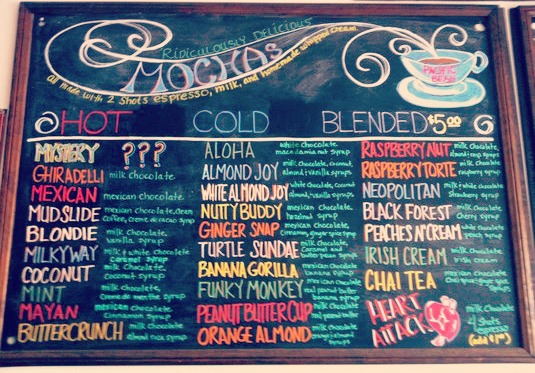 Ridiculously Delicious
MOCHAS
All made with 2 shots espresso, milk, and homemade whipped cream.
PACIFIC
HOT COLD BLENDED $5.00
MYSTERY ???
GHIRADELLI milk chocolate
MEXICAN mexican chocolate
MUDSLIDE mexican chocolate, Irish
coffee, creme de cacao syrup
BLONDIE milk chocolate,
vanilla syrup
MILKYWAY milk + white chocolate
caramel syrup
COCONUT milk chocolate,
coconut syrup
MINT milk chocolate,
creme de menthe syrup
MAYAN mexican chocolate
cinnamon syrup
BUTTERCRUNCH milk chocolate
almond roca syrup
ALOHA white chocolate,
macadamia nut syrup
ALMOND JOY milk chocolate, coconut,
almond, vanilla syrups
WHITE ALMOND JOY white chocolate, coconut,
almond, vanilla syrups
NUTTY BUDDY mexican chocolate,
hazelnut syrup
GINGER SNAP mexican chocolate,
TURTLE SUNDAE milk chocolate,
caramel and
butter pecan syrup
BANANA GORILLA mexican chocolate
banana syrup
FUNKY MONKEY mexican chocolate
real peanut butter
banana syrup
PEANUT BUTTER CUP milk chocolate
real peanut butter
ORANGE ALMOND milk chocolate
orange, almond
syrups
RASPBERRY NUT milk chocolate,
almond, rasp syrups
RASPBERRY TORTE milk chocolate
raspberry syrup
NEOPOLITAN milk + white chocolate
strawberry syrup
BLACK FOREST milk chocolate
cherry syrup
PEACHES N' CREAM white chocolate
peach syrup
IRISH CREAM milk chocolate
irish cream
CHAI TEA mexican chocolate
HEART
ATTACK
milk chocolate
4 shots
espresso
(add $1.00)